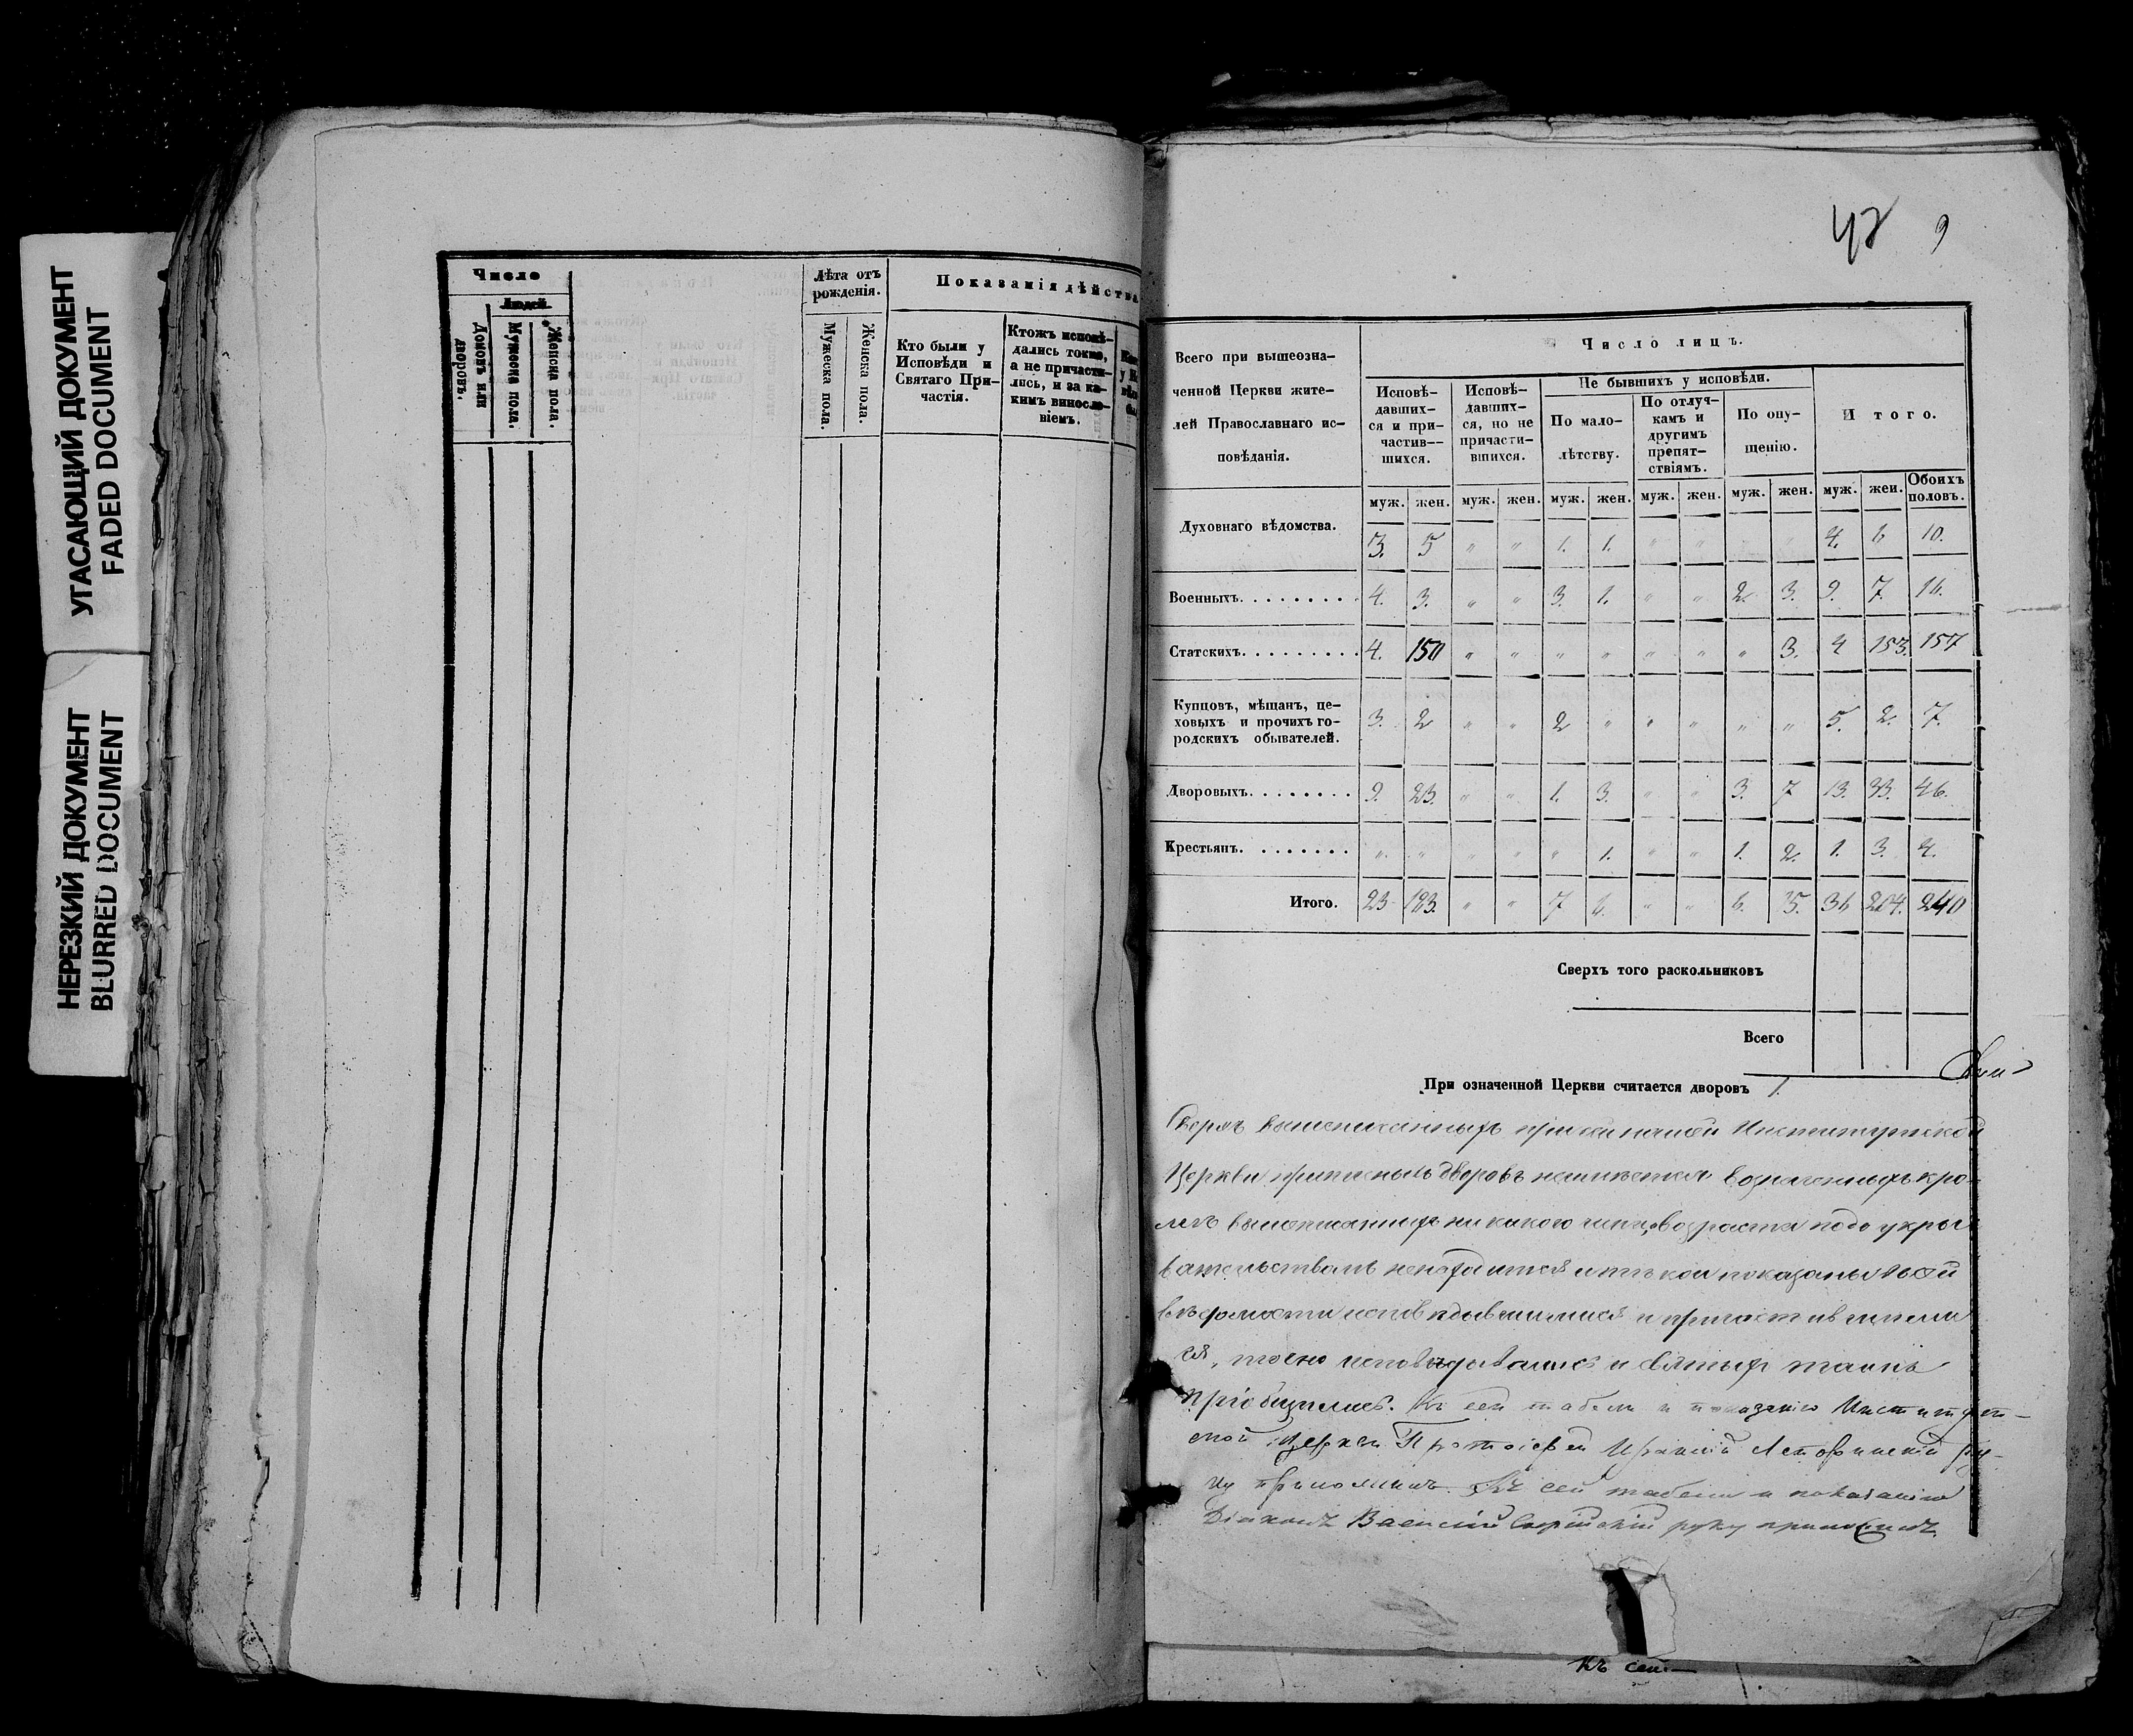 УГАСАЮЩИЙ ДОКУМЕНТ
FADED DOCUMENT
НЕРЕЗКИЙ ДОКУМЕНТ
BLURRED DOCUMENT
Число
Людей
Домовъ или дворовъ.
Мужеска пола.
Женска пола.
Лѣта отъ рожденія.
Мужеска пола.
Женска пола.
Показанія дѣйства
Кто были у
Исповѣди и
Святаго При-
частія.
Ктожъ исповѣ-
дались токмо,
а не причасти-
лись, и за ка-
кимъ винosло-
віемъ.
42 9
Всего при вышеозна-
ченной Церкви жите-
лей Православнаго ис-
повѣданія.
Число лицъ.
Исповѣ-
давших-
ся и при-
частив-
шихся.
Исповѣ-
давших-
ся, но не
причасти-
вшихся.
Не бывшихъ у исповѣди.
По мало-
лѣтству.
По отлуч-
камъ и
другимъ
препят-
ствіямъ.
По опу-
щенію.
Итого.
муж. жен. муж. жен. муж. жен. муж. жен. муж. жен. муж. жен. Обоихъ половъ.
Духовнаго вѣдомства. 3. 5 " " 1. 1. " " " " 4. 6 10.
Военныхъ. 4. 3. " " 3. 1. " " 2. 3. 9. 7. 16.
Статскихъ. 4. 150 " " " " " " " 3. 4 153. 157
Купцовъ, мѣщанъ, це-
ховыхъ и прочихъ го-
родскихъ обывателей. 3. 2 " " 2 " " " " " 5. 2. 7.
Дворовыхъ. 9. 23. " " 1. 3. " " 3. 7 13. 33. 46.
Крестьянъ. " " " " " 1. " " 1. 2. 1. 3. 4.
Итого. 23 183. " " 7 6. " " 6. 15. 36 204. 240
Сверхъ того раскольниковъ
Всего
При означенной Церкви считается дворовъ 1.
Сверхъ вышеписанныхъ при Институтской
Церкви приписныхъ дворовъ неимѣется
вышеписанныхъ никакого чина, возраста подъ укры-
вательствомъ ненаходится и тѣ кои показаны въ сей
вѣдомости исповѣдывавшимися и причастившими
ся, точно исповѣдывались и святыхъ таинъ
пріобщились. Къ сей табели и показанію Институт-
ской Церкви Протоіерей Ираклій ру-
ку приложилъ. Къ сей табели и показанію
Діаконъ Василій руку приложилъ.
Къ сей